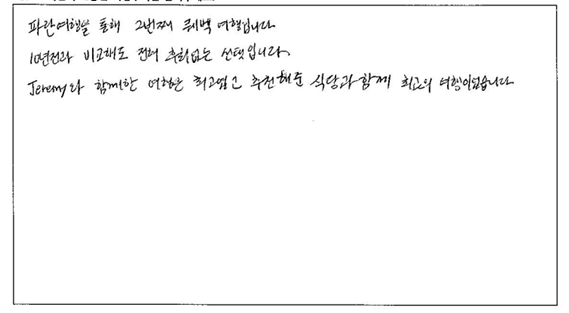 파란여행을 통해 2번째 퀘백 여행입니다
10년전과 비교해도 전혀 후회없는 선택입니다.
Jeremy와 함께한 여행은 최고였고 추천해준 식당과 함께 최고의 여행이었습니다